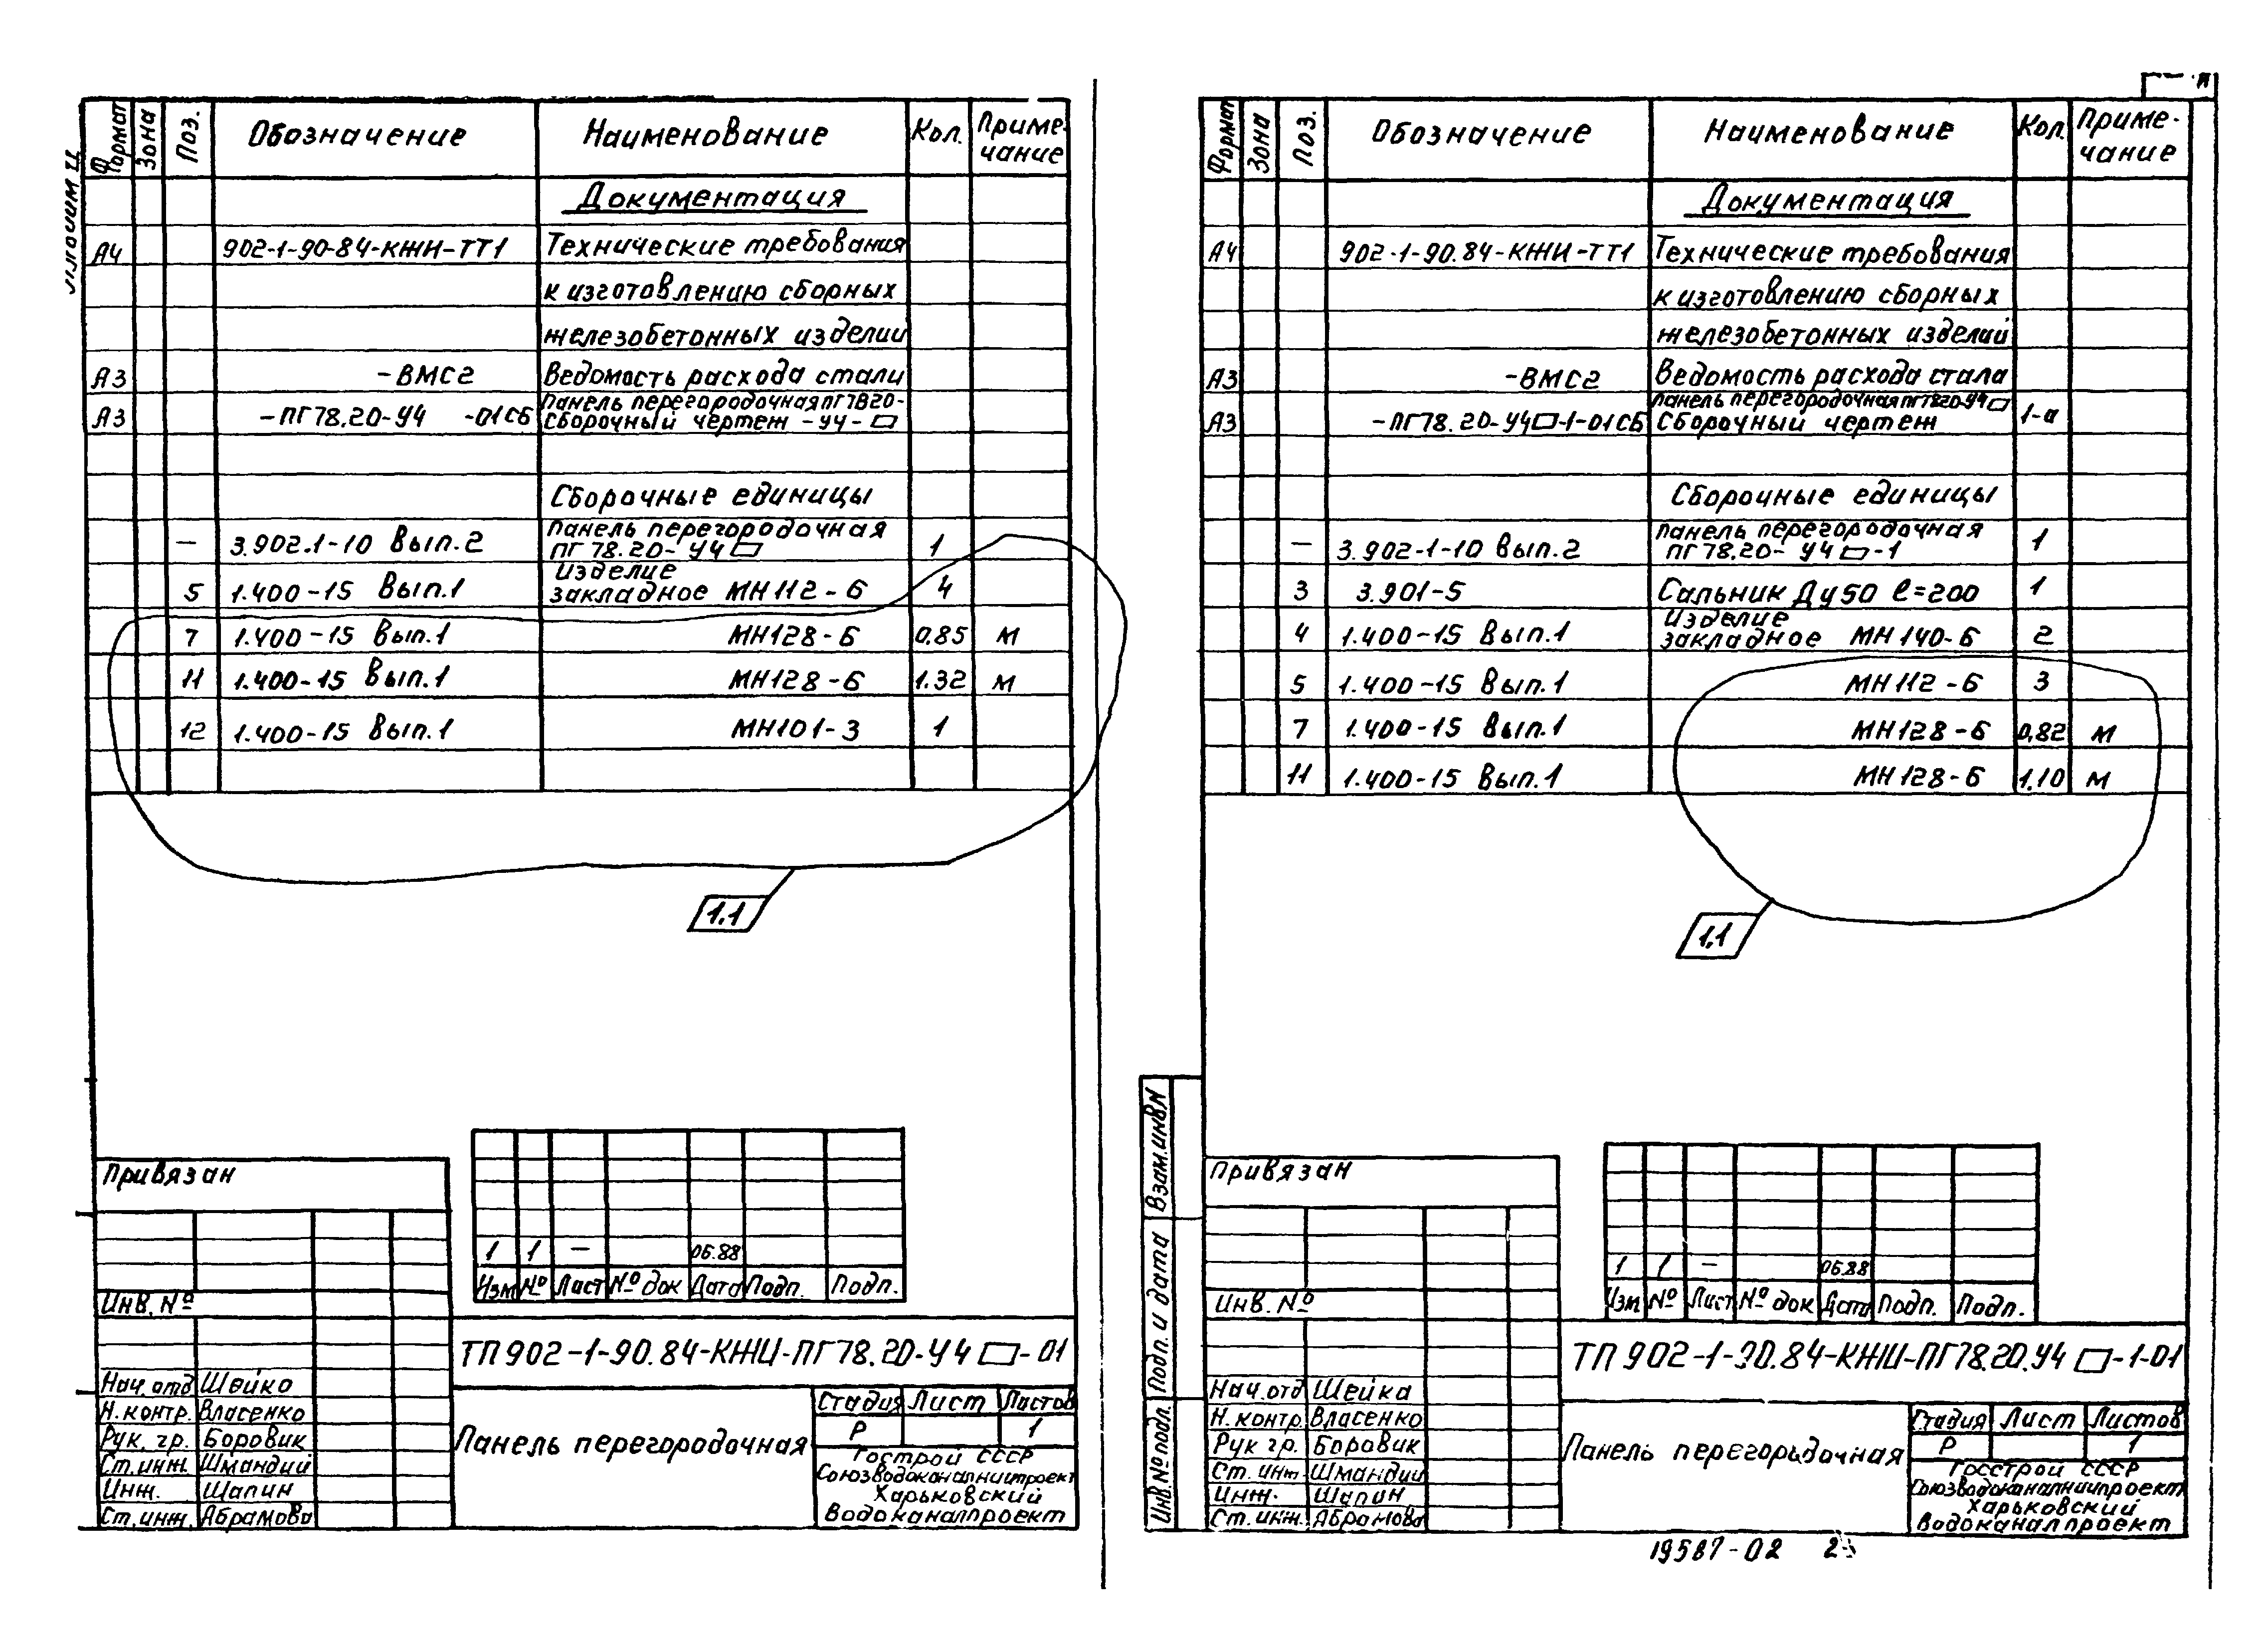 Формат Зона Поз. Обозначение Наименование Кол. Приме-
чание
Документация
А4 902-1-90-84-КЖИ-ТТ1 Технические требования
к изготовлению сборных
железобетонных изделии
А3 -ВМС2 Ведомость расхода стали
А3 -ПГ78.20-У4 -01СБ Панель перегородочная ПГ7820-
Сборочный чертеж -У4-▱
Сборочные единицы
— 3.902.1-10 Вып.2 Панель перегородочная 1
ПГ 78.20- У4▱
Изделие
5 1.400-15 Вып.1 закладное МН112-6 4
7 1.400-15 Вып.1 МН128-6 0,85 м
11 1.400-15 Вып.1 МН128-6 1.32 м
12 1.400-15 Вып.1 МН101-3 1
1.1
Привязан
Инв. №
1 1 — 06.88
Изм № Лист № док Дата Подп. Подп.
ТП902-1-90.84-КЖИ-ПГ78.20-У4▱-01
Нач.отд Шейко
Н.контр. Власенко
Рук. гр. Боровик
Ст.инж. Шмандий
Инж. Шапин
Ст.инж. Абрамова
Панель перегородочная
Стадия Лист Листов
Р 1
Гострой СССР
Союзводоканалниипроект
Харьковский
Водоканалпроект
Формат Зона Поз. Обозначение Наименование Кол. Приме-
чание
Документация
А4 902-1-90.84-КЖИ-ТТ1 Технические требования
к изготовлению сборных
железобетонных изделий
А3 -ВМС2 Ведомость расхода стала
Панель перегородочная ПГ7820-У4▱
А3 -ПГ78.20-У4▱-1-01СБ Сборочный чертеж 1-а
Сборочные единицы
— 3.902-1-10 Вып.2 Панель перегородочная 1
ПГ78.20- У4▱-1
3 3.901-5 Сальник Ду50 ℓ=200 1
Изделие
4 1.400-15 Вып.1 закладное МН140-6 2
5 1.400-15 Вып.1 МН112-6 3
7 1.400-15 Вып.1 МН128-6 0,82 м
11 1.400-15 Вып.1 МН128-6 1.10 м
1.1
Взам.инв.N
Подп. и дата
Инв.№подл.
Привязан
Инв. №
1 1 — 06.88
Изм № Лист № док Дата Подп. Подп.
ТП902-1-90.84-КЖИ-ПГ78.20.У4▱-1-01
Нач.отд Шейка
Н.контр. Власенко
Рук гр. Боровик
Ст.инж. Шмандий
Инж. Шапин
Ст.инж. Абрамова
Панель перегородочная
Стадия Лист Листов
Р 1
Госстрой СССР
Союзводоканалниипроект
Харьковский
Водоканалпроект
19587-02